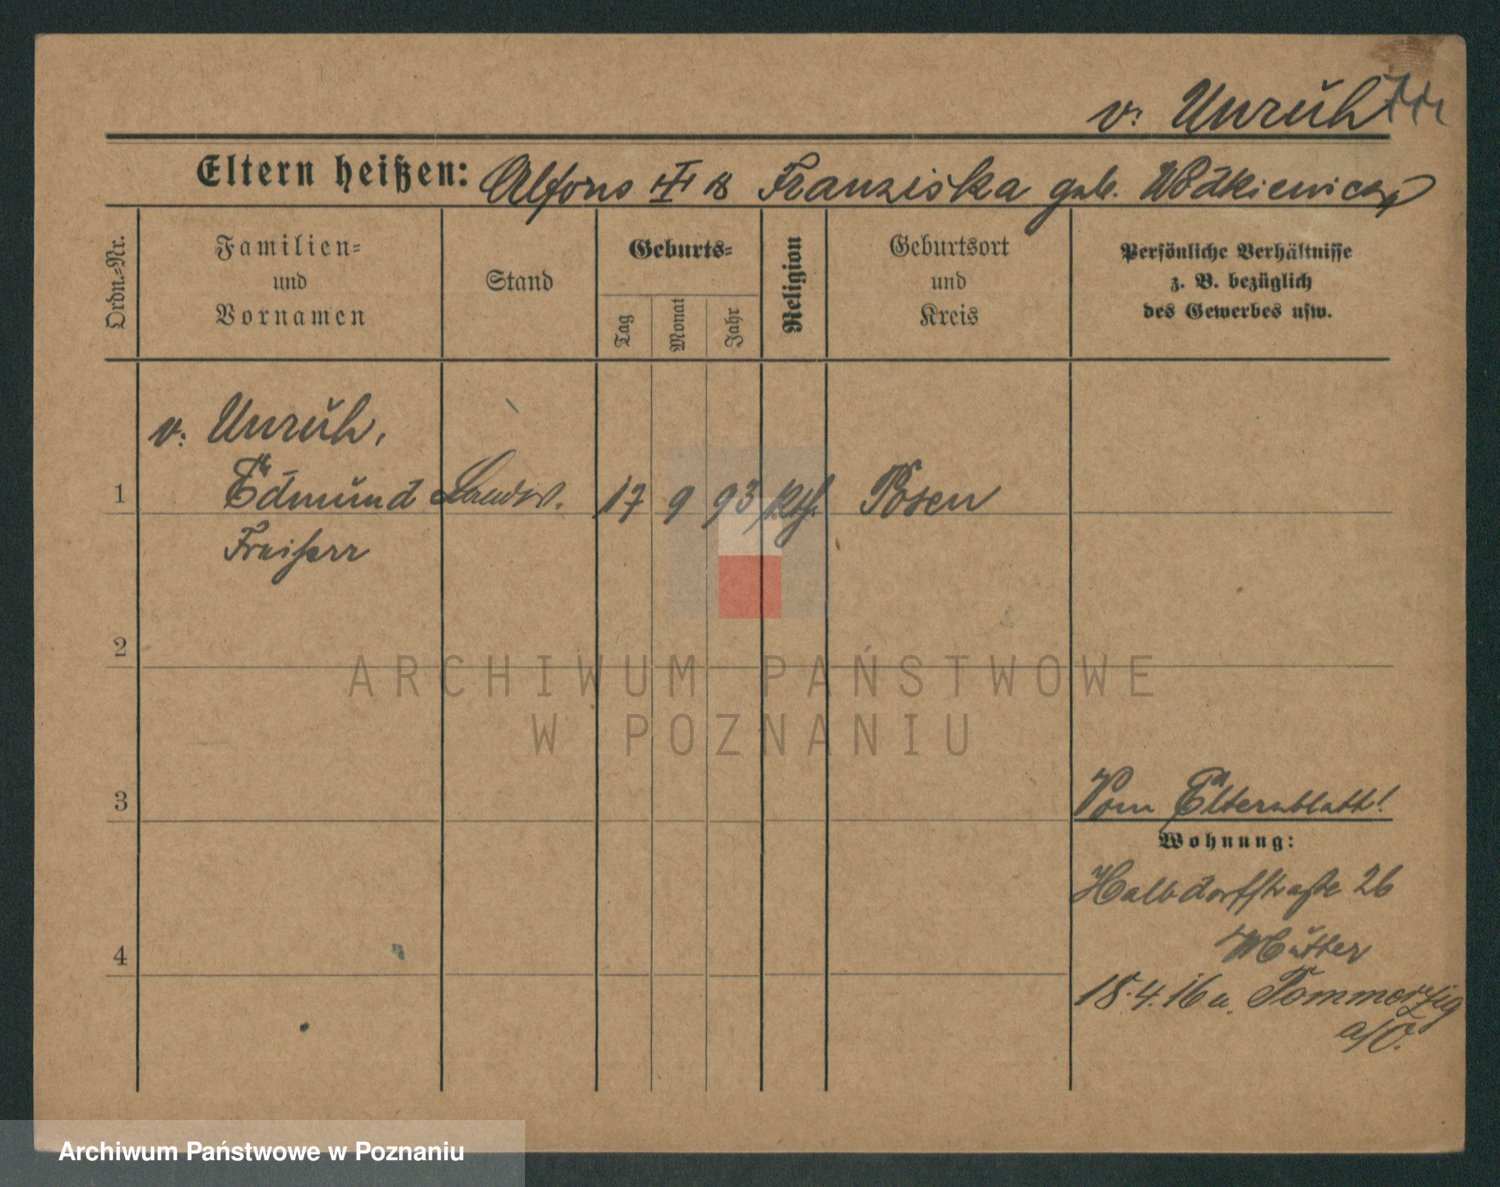 v. Unruh
Eltern heißen: Alfons u Franziska geb. Wodkiewicz
Ordn.-Nr.
Familien-
und
Vornamen
Stand
Geburts-
Tag
Monat
Jahr
Religion
Geburtsort
und
Kreis
Persönliche Verhältnisse
z. B. bezüglich
des Gewerbes usw.
v. Unruh,
1 Edmund Landw. 17 9 93 kth. Posen
Freiherr
2
ARCHIWUM PAŃSTWOWE
W POZNANIU
3 Vom Elternblatt!
Wohnung:
Halbdorfstraße 26
Mutter
4
18.4.16 n. Pommerzig
a/O.
Archiwum Państwowe w Poznaniu